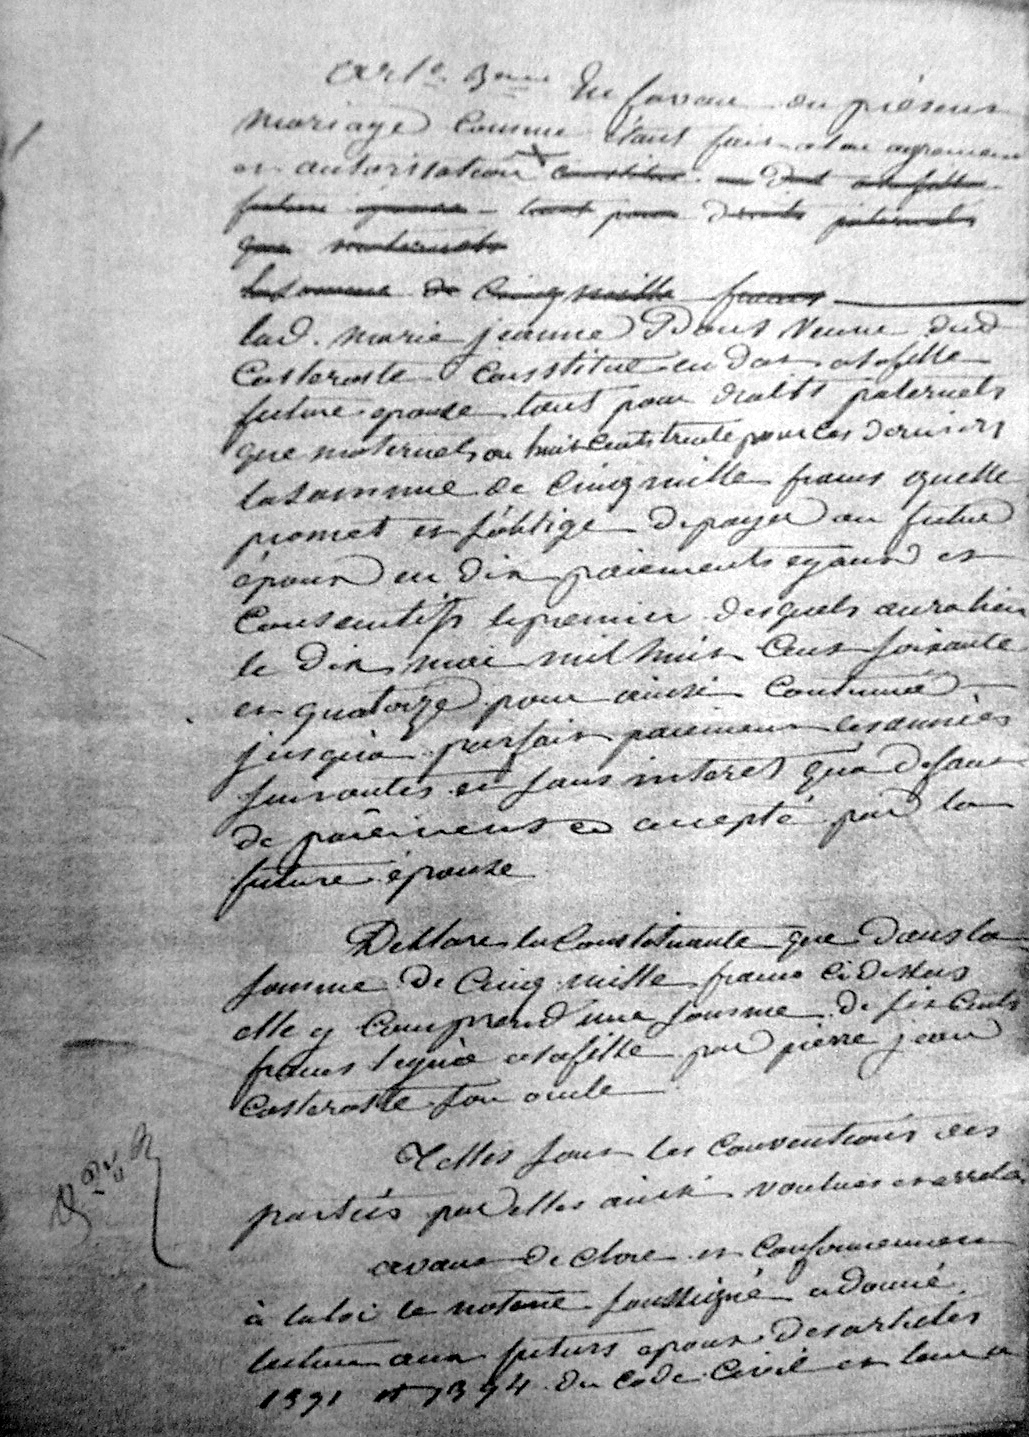 art.e 3eme En faveur du présent
mariage comme étant fait at au agrement
et autorisation constitue en dot a sa fille
future épouse tant pour droits paternels
que maternels
la somme de cinq mille francs
lad. marie jeanne veuve dud
Casteraste constitue en dot asa fille
future epouse tant pour droits paternels
que maternels ou huit cents trente pour ces derniers
la somme de cinq mille francs quelle
promet et s'oblige de payer au futur
époux en dix paiements egaux et
consecutifs le premier desquels aura lieu
le dix mai mil huit cent soixante
et quatorze pour ainsi continué
jusqua parfait paiement les années
suivantes et sans interet qua defaut
de paiement accepté par la
future épouse
Déclare la constituante que dans la
somme de cinq mille francs ci dessus
elle y comprend une somme de six cents
francs légué asa fille par pierre jean
Casteraste son oncle
Telles sont les conventions des
parties par elles ainsi voulues et arreté
avant de clore et conformement
à la loi le notaire soussigné a donné
lecture aux futurs epoux des articles
1391 et 1394 du code civil et leur a